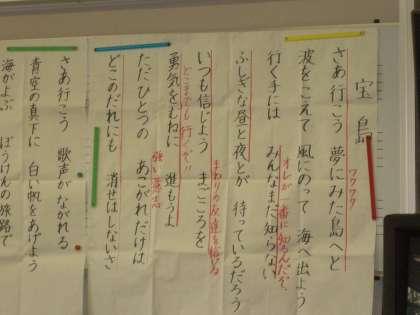 宝島
さあ行こう 夢にみた島へと
ワクワク
波をこえて 風にのって 海へ出よう
行く手には みんなまだ知らない
オレが一番に知るんだぞ
ふしぎな昼と夜とが 待っているだろう
いつも信じよう まごころを
まわりの友達を信じる
どこまでも行くぞ!!
勇気をむねに 進もうよ
ただひとつの あこがれだけは
強い意志
どこのだれにも 消せはしないさ
さあ行こう 歌声がながれる
青空の真下に 白い帆をあげよう
海がよぶ ぼうけんの旅路で